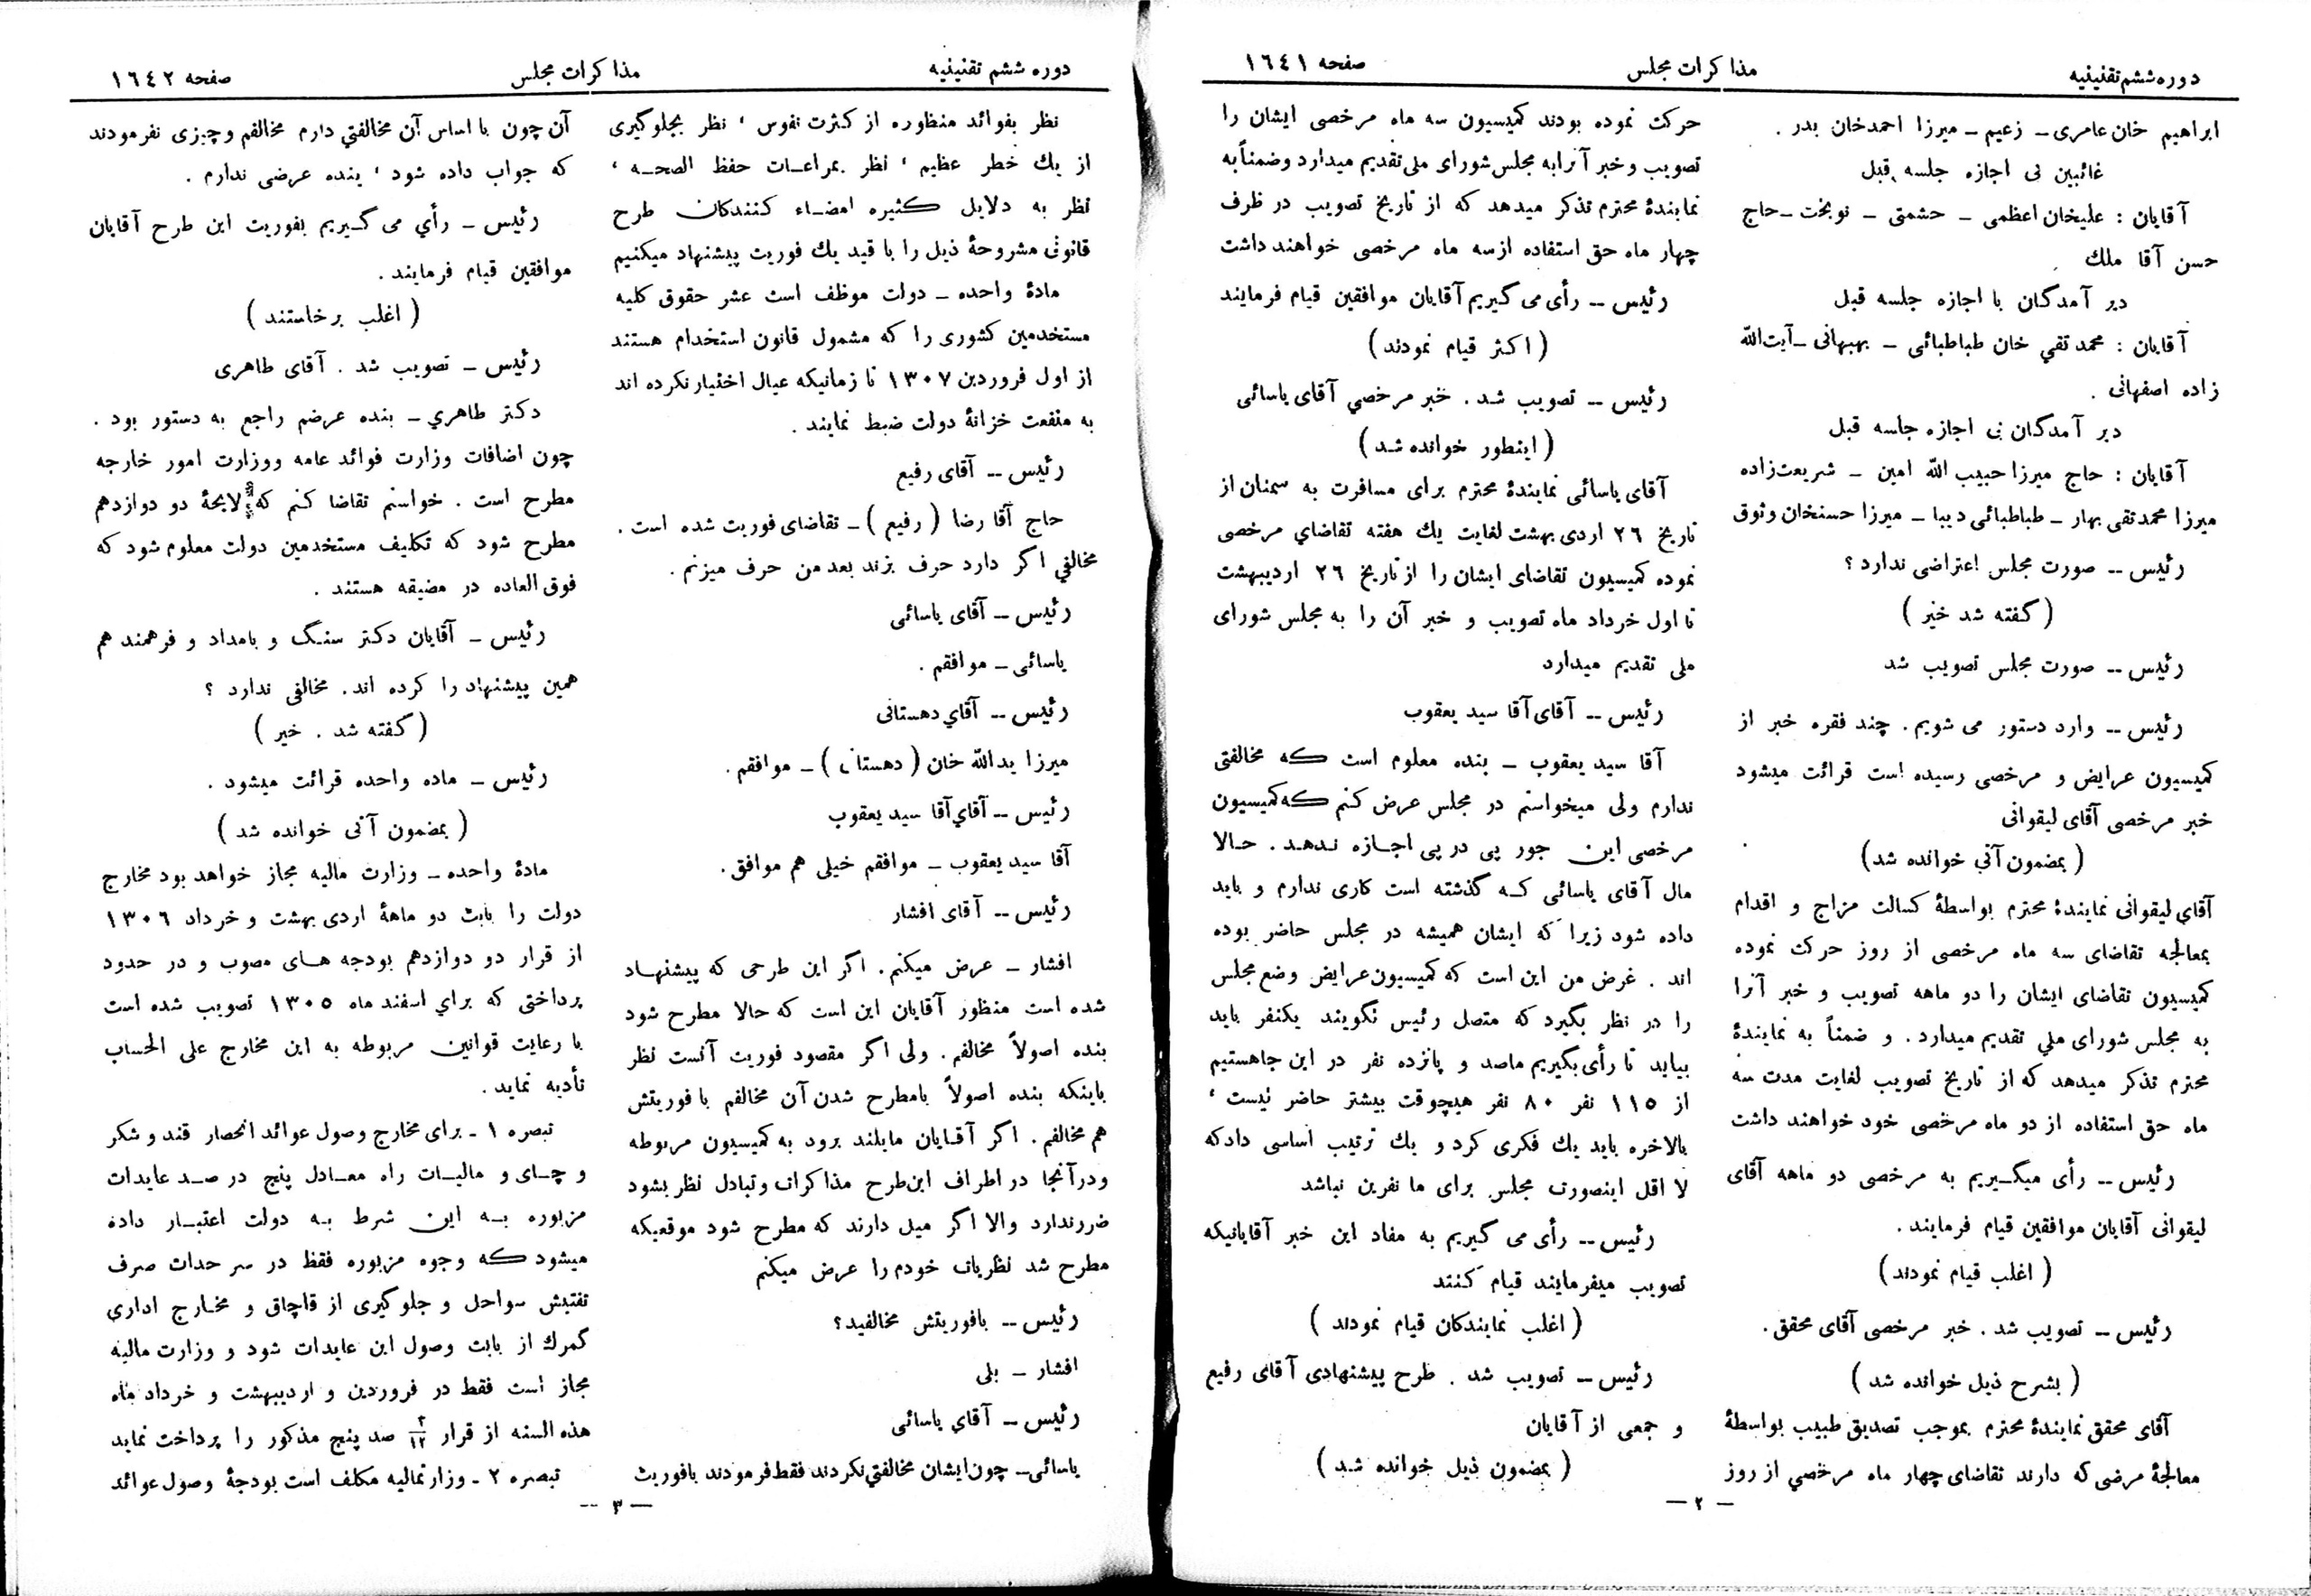 دوره ششم تقنینیه
مذاکرات مجلس
صفحه ١٦٤١
ابراهیم خان عامری ـ زعیم ـ میرزا احمدخان بدر .
غائبین بی اجازه جلسه قبل
آقایان : علیخان اعظمی ـ حشمتی ـ نوبخت ـ حاج
حسن آقا ملك
دیر آمدگان با اجازه جلسه قبل
آقایان : محمد تقي خان طباطبائی ـ بهبهانی ـ آیت‌الله
زاده اصفهانی .
دیر آمدگان بی اجازه جلسه قبل
آقایان : حاج میرزا حبیب الله امین ـ شریعت‌زاده
میرزا محمدتقی بهار ـ طباطبائی دیبا ـ میرزا حسنخان وثوق
رئیس ــ صورت مجلس اعتراضی ندارد ؟
( گفته شد خیر )
رئیس ــ صورت مجلس تصویب شد
رئیس ــ وارد دستور می شویم . چند فقره خبر از
کمیسیون عرایض و مرخصی رسیده است قرائت میشود
خبر مرخصی آقای لیقوانی
( بمضمون آتي خوانده شد )
آقاي لیقوانی نمایندهٔ محترم بواسطهٔ کسالت مزاج و اقدام
بمعالجه تقاضای سه ماه مرخصی از روز حرکت نموده
کمیسیون تقاضای ایشان را دو ماهه تصویب و خبر آنرا
به مجلس شورای ملي تقدیم میدارد . و ضمناً به نمایندهٔ
محترم تذکر میدهد که از تاریخ تصویب لغایت مدت سه
ماه حق استفاده از دو ماه مرخصی خود خواهند داشت
رئیس ــ رأی میگیریم به مرخصی دو ماهه آقای
لیقوانی آقایان موافقین قیام فرمایند .
( اغلب قیام نمودند )
رئیس ــ تصویب شد . خبر مرخصی آقای محقق .
( بشرح ذیل خوانده شد )
آقای محقق نمایندهٔ محترم بموجب تصدیق طبیب بواسطهٔ
معالجهٔ مرضی که دارند تقاضای چهار ماه مرخصي از روز
حرکت نموده بودند کمیسیون سه ماه مرخصی ایشان را
تصویب و خبر آنرا به مجلس شورای ملی تقدیم میدارد و ضمناً به
نمایندهٔ محترم تذکر میدهد که از تاریخ تصویب در ظرف
چهار ماه حق استفاده از سه ماه مرخصی خواهند داشت
رئیس ــ رأی می گیریم آقایان موافقین قیام فرمایند
( اکثر قیام نمودند )
رئیس ــ تصویب شد . خبر مرخصي آقای یاسائی
( اینطور خوانده شد )
آقای یاسائی نمایندهٔ محترم برای مسافرت به سمنان از
تاریخ ٢٦ اردی بهشت لغایت یك هفته تقاضاي مرخصی
نموده کمیسیون تقاضای ایشان را از تاریخ ٢٦ اردیبهشت
تا اول خرداد ماه تصویب و خبر آن را به مجلس شورای
ملی تقدیم میدارد
رئیس ــ آقای آقا سید یعقوب
آقا سید یعقوب ـ بنده معلوم است که مخالفتی
ندارم ولی میخواستم در مجلس عرض کنم که کمیسیون
مرخصی این جور پی در پی اجازه ندهد . حالا
مال آقای یاسائی که گذشته است کاری ندارم و باید
داده شود زیرا که ایشان همیشه در مجلس حاضر بوده
اند . غرض من این است که کمیسیون عرایض وضع مجلس
را در نظر بگیرد که متصل رئیس نگویند یکنفر باید
بیاید تا رأی بگیریم ماصد و پانزده نفر در این جا هستیم
از ١١٥ نفر ٨٠ نفر هیچوقت بیشتر حاضر نیست ،
بالاخره باید یك فکری کرد و یك ترتیب اساسی داد که
لا اقل اینصورت مجلس برای ما نفرین نباشد
رئیس ــ رأی می گیریم به مفاد این خبر آقایانیکه
تصویب میفرمایند قیام کنند
( اغلب نمایندگان قیام نمودند )
رئیس ــ تصویب شد . طرح پیشنهادی آقای رفیع
و جمعی از آقایان
( بمضمون ذیل خوانده شد )
— ٢ —
دوره ششم تقنینیه
مذاکرات مجلس
صفحه ١٦٤٢
نظر بفوائد منظوره از کثرت نفوس ، نظر بجلوگیری
از یك خطر عظیم ، نظر بمراعات حفظ الصحه ،
نظر به دلایل کثیره امضاء کنندگان طرح
قانونی مشروحهٔ ذیل را با قید یك فوریت پیشنهاد میکنیم
مادهٔ واحده ـ دولت موظف است عشر حقوق کلیه
مستخدمین کشوری را که مشمول قانون استخدام هستند
از اول فروردین ١٣٠٧ تا زمانیکه عیال اختیار نکرده اند
به منفعت خزانهٔ دولت ضبط نمایند .
رئیس ــ آقای رفیع
حاج آقا رضا ( رفیع ) ـ تقاضای فوریت شده است .
مخالفي اگر دارد حرف بزند بعد من حرف میزنم .
رئیس ــ آقای یاسائی
یاسائی ـ موافقم .
رئیس ــ آقاي دهستانی
میرزا یدالله خان ( دهستانی ) ـ موافقم .
رئیس ــ آقاي آقا سید یعقوب
آقا سید یعقوب ـ موافقم خیلی هم موافق .
رئیس ــ آقای افشار
افشار ـ عرض میکنم . اگر این طرحی که پیشنهاد
شده است منظور آقایان این است که حالا مطرح شود
بنده اصولاً مخالفم . ولی اگر مقصود فوریت آنست نظر
باینکه بنده اصولاً بامطرح شدن آن مخالفم با فوریتش
هم مخالفم . اگر آقایان مایلند برود به کمیسیون مربوطه
ودر آنجا در اطراف این طرح مذاکرات و تبادل نظر بشود
ضرر ندارد والا اگر میل دارند که مطرح شود موقعیکه
مطرح شد نظریات خودم را عرض میکنم
رئیس ــ بافوریتش مخالفید ؟
افشار ـ بلی
رئیس ــ آقاي یاسائی
یاسائی ـ چون ایشان مخالفتي نکردند فقط فرمودند بافوریت
آن چون با اساس آن مخالفتي دارم مخالفم و چیزی نفرمودند
که جواب داده شود ، بنده عرضی ندارم .
رئیس ـ رأي می گیریم بفوریت این طرح آقایان
موافقین قیام فرمایند .
( اغلب برخاستند )
رئیس ـ تصویب شد . آقای طاهری
دکتر طاهري ـ بنده عرضم راجع به دستور بود .
چون اضافات وزارت فوائد عامه ووزارت امور خارجه
مطرح است . خواستم تقاضا کنم که لایحهٔ دو دوازدهم
مطرح شود که تکلیف مستخدمین دولت معلوم شود که
فوق العاده در مضیقه هستند .
رئیس ـ آقایان دکتر سنگ و بامداد و فرهمند هم
همین پیشنهاد را کرده اند . مخالفی ندارد ؟
( گفته شد . خیر )
رئیس ـ ماده واحده قرائت میشود .
( بمضمون آتی خوانده شد )
مادهٔ واحده ـ وزارت مالیه مجاز خواهد بود مخارج
دولت را بابت دو ماههٔ اردی بهشت و خرداد ١٣٠٦
از قرار دو دوازدهم بودجه های مصوب و در حدود
پرداختی که براي اسفند ماه ١٣٠٥ تصویب شده است
با رعایت قوانین مربوطه به این مخارج علی الحساب
تأدیه نماید .
تبصره ١ ـ برای مخارج وصول عوائد انحصار قند و شکر
و چای و مالیات راه معادل پنج در صد عایدات
مزبوره به این شرط به دولت اعتبار داده
میشود که وجوه مزبوره فقط در سر حدات صرف
تفتیش سواحل و جلوگیری از قاچاق و مخارج اداري
گمرك از بابت وصول این عایدات شود و وزارت مالیه
مجاز است فقط در فروردین و اردیبهشت و خرداد ماه
هذه السنه از قرار ٣/١٢ صد پنج مذکور را پرداخت نماید
تبصره ٢ ـ وزارتمالیه مکلف است بودجهٔ وصول عوائد
— ٣ —